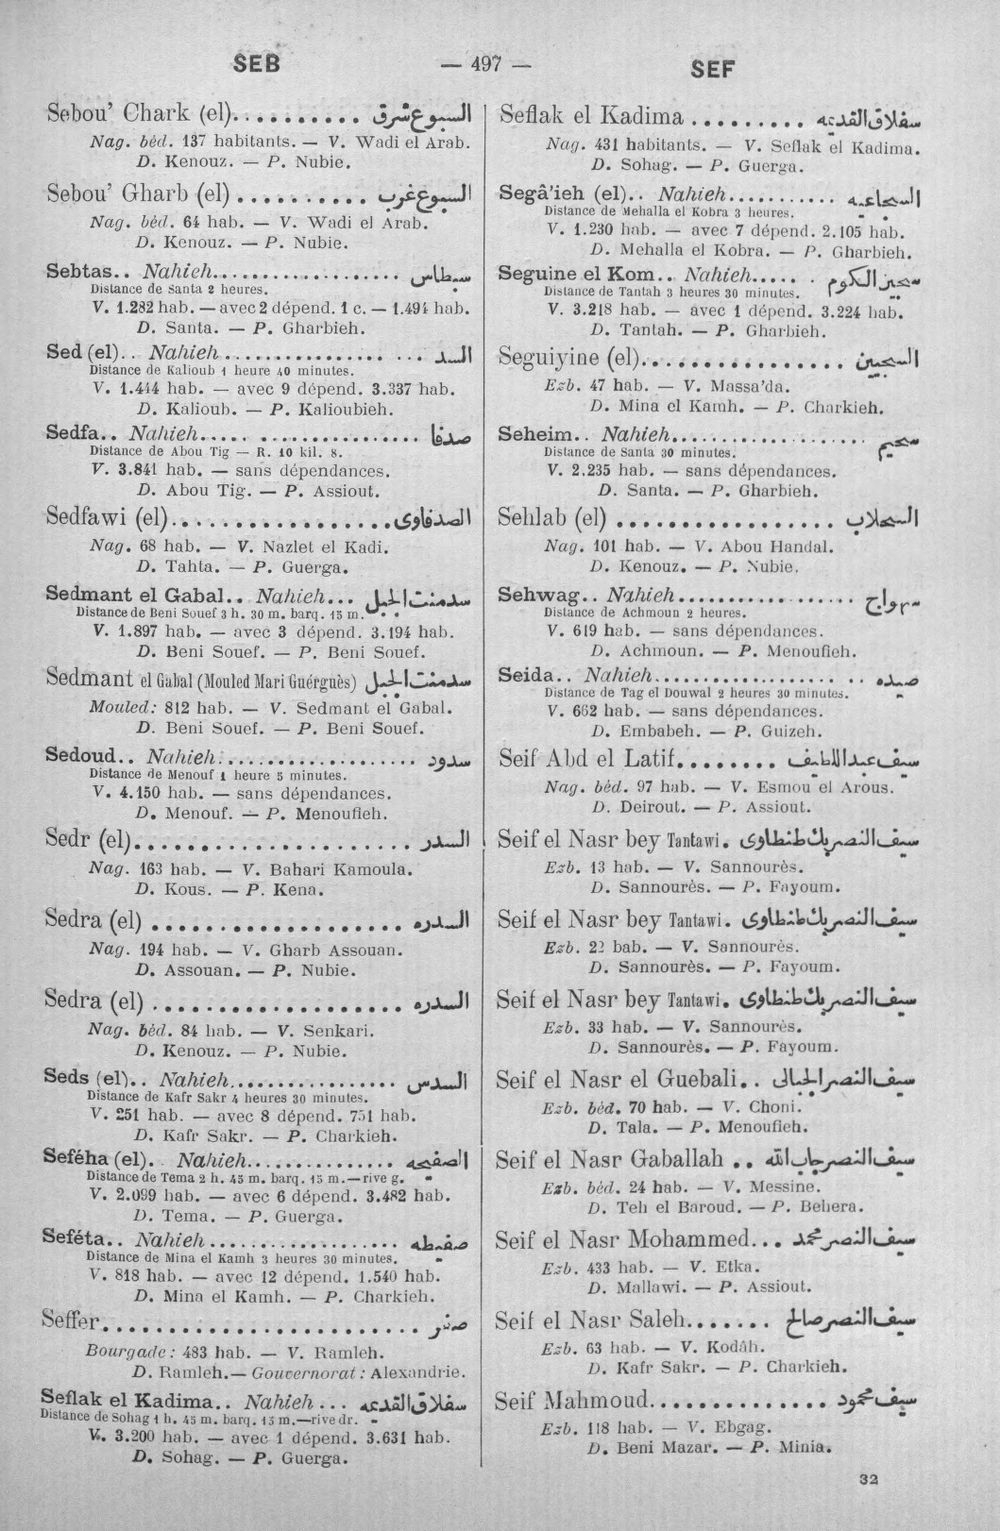 SEB
— 497 —
SEF
Sebou’ Chark (el)........... السبوع شرق
Nag. béd. 137 habitants. — V. Wadi el Arab.
D. Kenouz. — P. Nubie.
Sebou’ Gharb (el).......... السبوع غرب
Nag. béd. 64 hab. — V. Wadi el Arab.
D. Kenouz. — P. Nubie.
Sebtas.. Nahieh................... سبطاس
Distance de Santa 2 heures.
V. 1.282 hab. — avec 2 dépend. 1 c. — 1.494 hab.
D. Santa. — P. Gharbieh.
Sed (el).. Nahieh................... السد
Distance de Kalioub 1 heure 40 minutes.
V. 1.444 hab. — avec 9 dépend. 3.337 hab.
D. Kalioub. — P. Kalioubieh.
Sedfa.. Nahieh..................... صدفا
Distance de Abou Tig — R. 10 kil. 8.
V. 3.841 hab. — sans dépendances.
D. Abou Tig. — P. Assiout.
Sedfawi (el)................. الصدفاوى
Nag. 68 hab. — V. Nazlet el Kadi.
D. Tahta. — P. Guerga.
Sedmant el Gabal.. Nahieh... سدمنت الجبل
Distance de Beni Souef 3 h. 30 m. barq. 15 m.
V. 1.897 hab. — avec 3 dépend. 3.194 hab.
D. Beni Souef. — P. Beni Souef.
Sedmant el Gabal (Mouled Mari Guérguès) سدمنت الجبل
Mouled: 812 hab. — V. Sedmant el Gabal.
D. Beni Souef. — P. Beni Souef.
Sedoud.. Nahieh.................... سدود
Distance de Menouf 1 heure 5 minutes.
V. 4.150 hab. — sans dépendances.
D. Menouf. — P. Menoufieh.
Sedr (el)...................... السدر
Nag. 163 hab. — V. Bahari Kamoula.
D. Kous. — P. Kena.
Sedra (el) ................... السدره
Nag. 194 hab. — V. Gharb Assouan.
D. Assouan. — P. Nubie.
Sedra (el) ................... السدره
Nag. béd. 84 hab. — V. Senkari.
D. Kenouz. — P. Nubie.
Seds (el).. Nahieh................. السدس
Distance de Kafr Sakr 4 heures 30 minutes.
V. 251 hab. — avec 8 dépend. 751 hab.
D. Kafr Sakr. — P. Charkieh.
Seféha (el).. Nahieh............... الصفيحه
Distance de Tema 2 h. 45 m. barq. 15 m. — rive g.
V. 2.099 hab. — avec 6 dépend. 3.482 hab.
D. Tema. — P. Guerga.
Seféta.. Nahieh.................... صفيطه
Distance de Mina el Kamh 3 heures 30 minutes.
V. 818 hab. — avec 12 dépend. 1.540 hab.
D. Mina el Kamh. — P. Charkieh.
Seffer........................ صفر
Bourgade: 483 hab. — V. Ramleh.
D. Ramleh. — Gouvernorat: Alexandrie.
Seflak el Kadima.. Nahieh... سفلاق القديمه
Distance de Sohag 1 h. 45 m. barq. 15 m. — rive dr.
V. 3.200 hab. — avec 1 dépend. 3.631 hab.
D. Sohag. — P. Guerga.
Seflak el Kadima ......... سفلاق القديمه
Nag. 431 habitants. — V. Seflak el Kadima.
D. Sohag. — P. Guerga.
Segâ’ieh (el).. Nahieh........... السجاعيه
Distance de Mehalla el Kobra 3 heures.
V. 1.230 hab. — avec 7 dépend. 2.105 hab.
D. Mehalla el Kobra. — P. Gharbieh.
Seguine el Kom.. Nahieh...... سجين الكوم
Distance de Tantah 3 heures 30 minutes.
V. 3.218 hab. — avec 1 dépend. 3.224 hab.
D. Tantah. — P. Gharbieh.
Seguiyine (el)................. السجيين
Ezb. 47 hab. — V. Massa’da.
D. Mina el Kamh. — P. Charkieh.
Seheim.. Nahieh.................... سحيم
Distance de Santa 30 minutes.
V. 2.235 hab. — sans dépendances.
D. Santa. — P. Gharbieh.
Sehlab (el) ................. السحلاب
Nag. 101 hab. — V. Abou Handal.
D. Kenouz. — P. Nubie.
Sehwag.. Nahieh.................... سهواج
Distance de Achmoun 2 heures.
V. 619 hab. — sans dépendances.
D. Achmoun. — P. Menoufieh.
Seida.. Nahieh..................... صيده
Distance de Tag el Douwal 2 heures 30 minutes.
V. 662 hab. — sans dépendances.
D. Embabeh. — P. Guizeh.
Seif Abd el Latif......... سيف عبد اللطيف
Nag. béd. 97 hab. — V. Esmou el Arous.
D. Deirout. — P. Assiout.
Seif el Nasr bey Tantawi. سيف النصر بك طنطاوى
Ezb. 13 hab. — V. Sannourès.
D. Sannourès. — P. Fayoum.
Seif el Nasr bey Tantawi. سيف النصر بك طنطاوى
Ezb. 22 bab. — V. Sannourès.
D. Sannourès. — P. Fayoum.
Seif el Nasr bey Tantawi. سيف النصر بك طنطاوى
Ezb. 33 hab. — V. Sannourès.
D. Sannourès. — P. Fayoum.
Seif el Nasr el Guebali.. سيف النصر الجبالى
Ezb. béd. 70 hab. — V. Choni.
D. Tala. — P. Menoufieh.
Seif el Nasr Gaballah .. سيف النصر جاب الله
Ezb. béd. 24 hab. — V. Messine.
D. Teh el Baroud. — P. Behera.
Seif el Nasr Mohammed... سيف النصر محمد
Ezb. 433 hab. — V. Etka.
D. Mallawi. — P. Assiout.
Seif el Nasr Saleh....... سيف النصر صالح
Ezb. 63 hab. — V. Kodâh.
D. Kafr Sakr. — P. Charkieh.
Seif Mahmoud.............. سيف محمود
Ezb. 118 hab. — V. Ebgag.
D. Beni Mazar. — P. Minia.
32